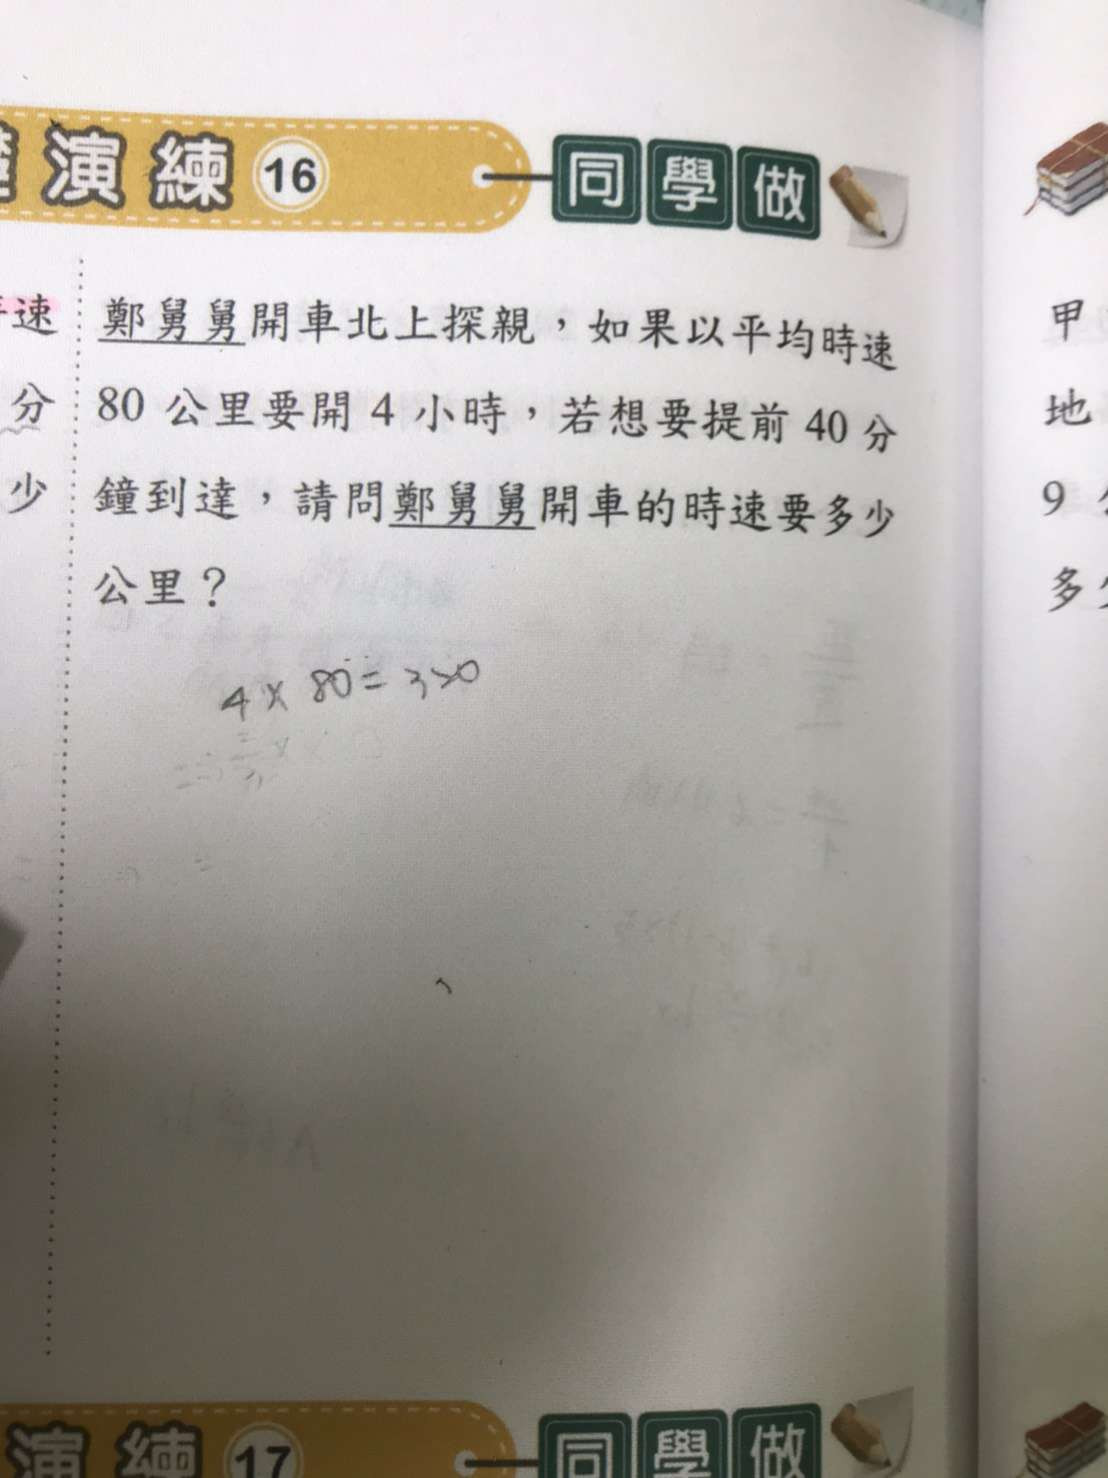 演練 16 同學做
速
鄭舅舅開車北上探親,如果以平均時速
甲
分
80 公里要開 4 小時,若想要提前 40 分
地
少
鐘到達,請問鄭舅舅開車的時速要多少
9
公里?
多
4 × 80 = 320
演練 17 同學做